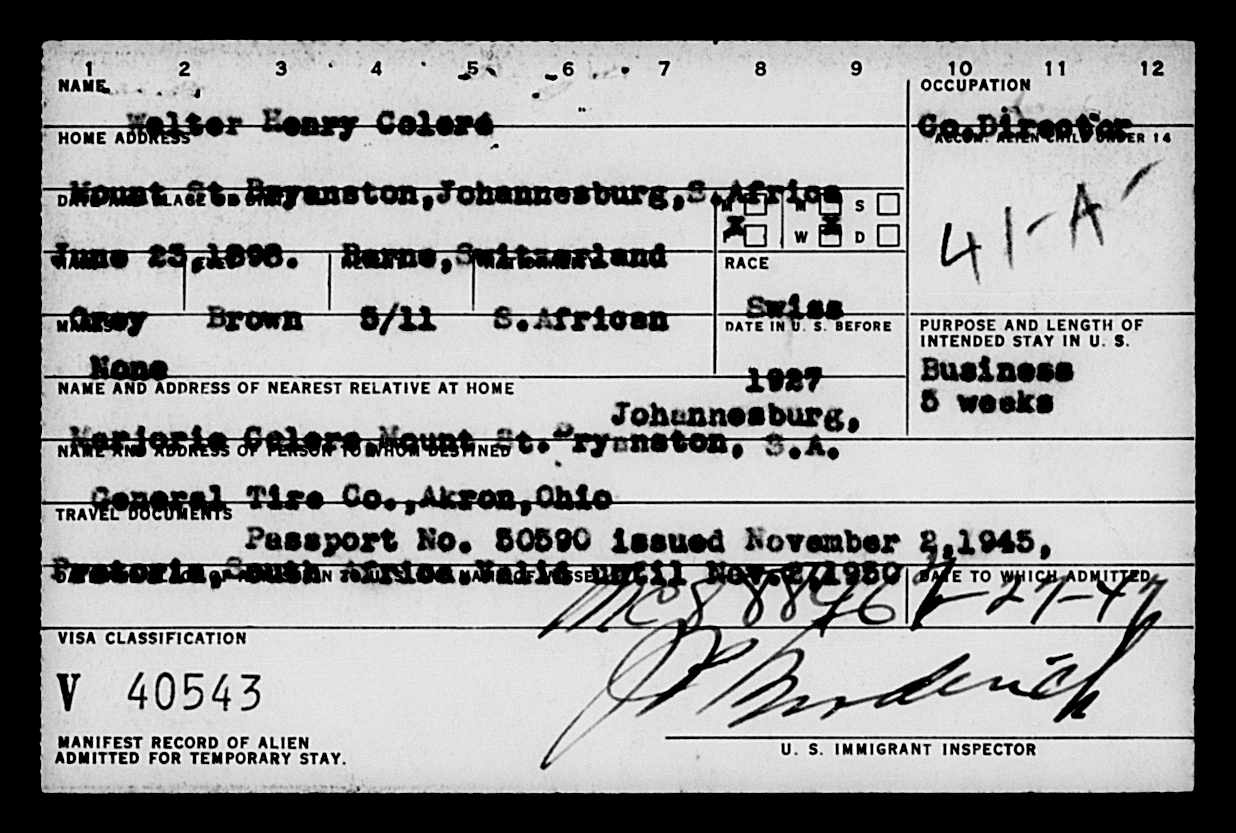 1 2 3 4 5 6 7 8 9 10 11 12
NAME OCCUPATION
Walter Henry Celere Co.Director
HOME ADDRESS ACCOM. ALIEN CHILD UNDER 14
Mount St.Bryanston,Johannesburg,S.Africa
M S
X X
W D
41-A-
June 23,1898. Berne,Switzerland
RACE
Grey Brown 5/11 S.African Swiss
MARKS DATE IN U. S. BEFORE PURPOSE AND LENGTH OF
INTENDED STAY IN U. S.
None 1927 Business
5 weeks
NAME AND ADDRESS OF NEAREST RELATIVE AT HOME
Johannesburg,
Marjorie Celere,Mount St.Bryanston, S.A.
NAME AND ADDRESS OF PERSON TO WHOM DESTINED
General Tire Co.,Akron,Ohio
TRAVEL DOCUMENTS
Passport No. 50590 issued November 2,1945,
Pretoria,South Africa.Valid until Nov.2,1950
DATE TO WHICH ADMITTED
-27-47
VISA CLASSIFICATION
V 40543
MANIFEST RECORD OF ALIEN
ADMITTED FOR TEMPORARY STAY.
U. S. IMMIGRANT INSPECTOR